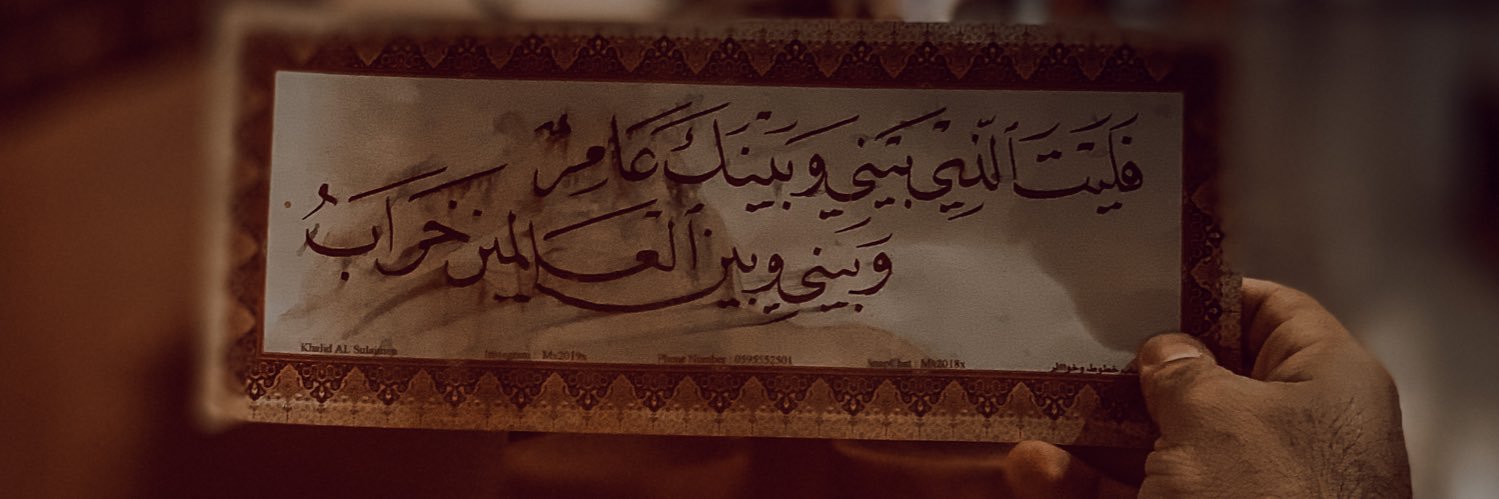 فَلَيْتَ ٱلَّذِي بَيْنِي وَبَيْنَكَ عَامِرٌ
وَبَيْنِي وبين ٱلْعَالمين خَرَابُ
Khalid AL Sulaiman Instagram : Mx2019x Phone Number : 0595552501 SnapChat : Mx2018x خطوط و خواطر